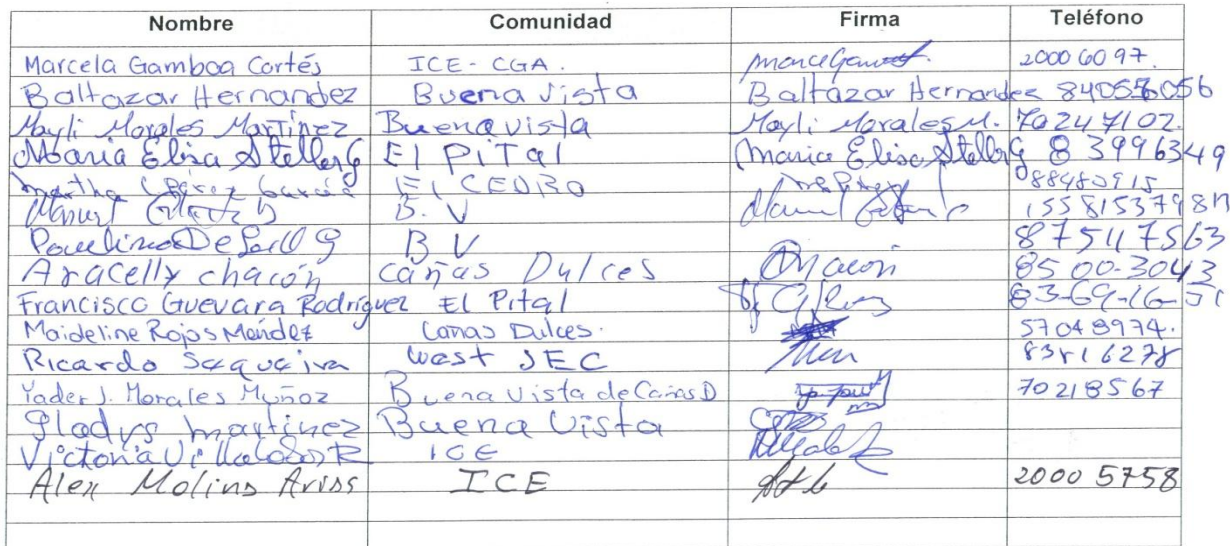 Nombre Comunidad Firma Teléfono
Marcela Gamboa Cortés ICE - CGA. 2000 60 97.
Baltazar Hernandez Buena vista Baltazar Hernandez
Mayli Morales Martínez Buena vista Mayli Morales M. 70247102.
Maria Elisa Steller G El PiTal Maria Elisa Steller G 83996349
Martha García El CEDRO
Manuel B. V
Paulino B V 87517563
Aracelly chacón cañas Dulces Chacon 8500-3043
Francisco Guevara Rodríguez El Pital 83-69-16-51
Maideline Rojas Méndez Canas Dulces. 57048974.
Ricardo west JEC 83816278
Yader J. Morales Muñoz Buena Vista de Cañas D 70218567
Gladys martinez Buena Vista
Victoria Villalobos R ICE
Alex Molina Arias ICE 2000 5758